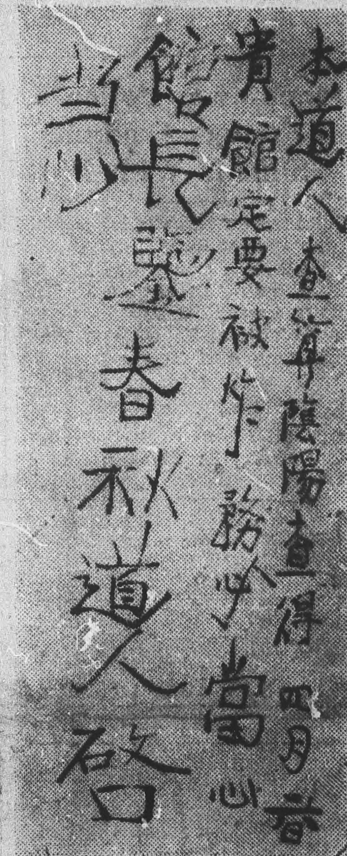 本道人查算陰陽查得四月一日
貴館定要被炸務必當心
館長鑒春秋道人啓
当心